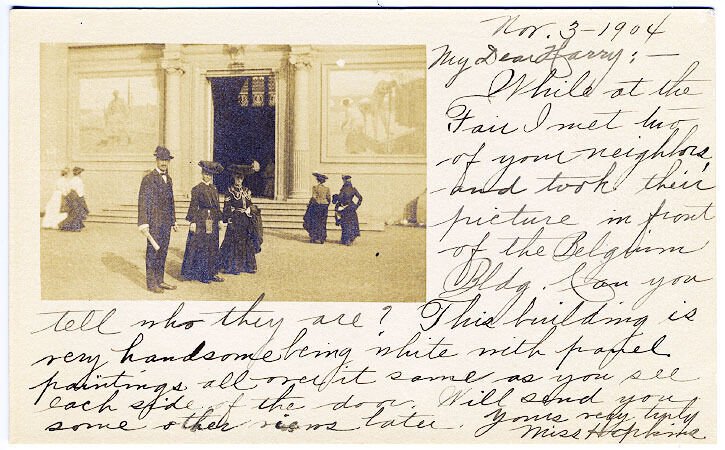 Nov. 3 - 1904
My Dear Harry: -
While at the
Fair I met two
of your neighbors,
and took their
picture in front
of the Belgium
Bldg. Can you
tell who they are? This building is
very handsome being white with panel
paintings all over it same as you see
each side of the door. Will send you
some other views later. Yours very truly
Miss Hopkins